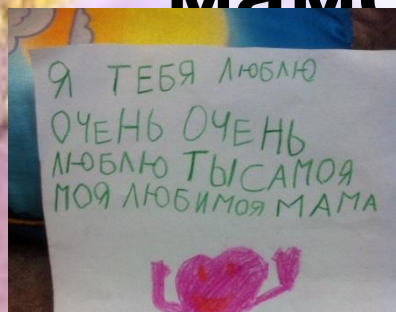 Я ТЕБЯ ЛЮБЛЮ
ОЧЕНЬ ОЧЕНЬ
ЛЮБЛЮ ТЫ САМОЯ
МОЯ ЛЮБИМОЯ МАМА